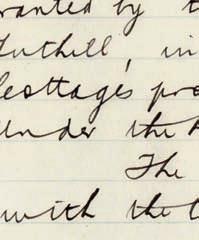 ranted by t
Tuthill, in
lesttages pro
Under the
The
with the